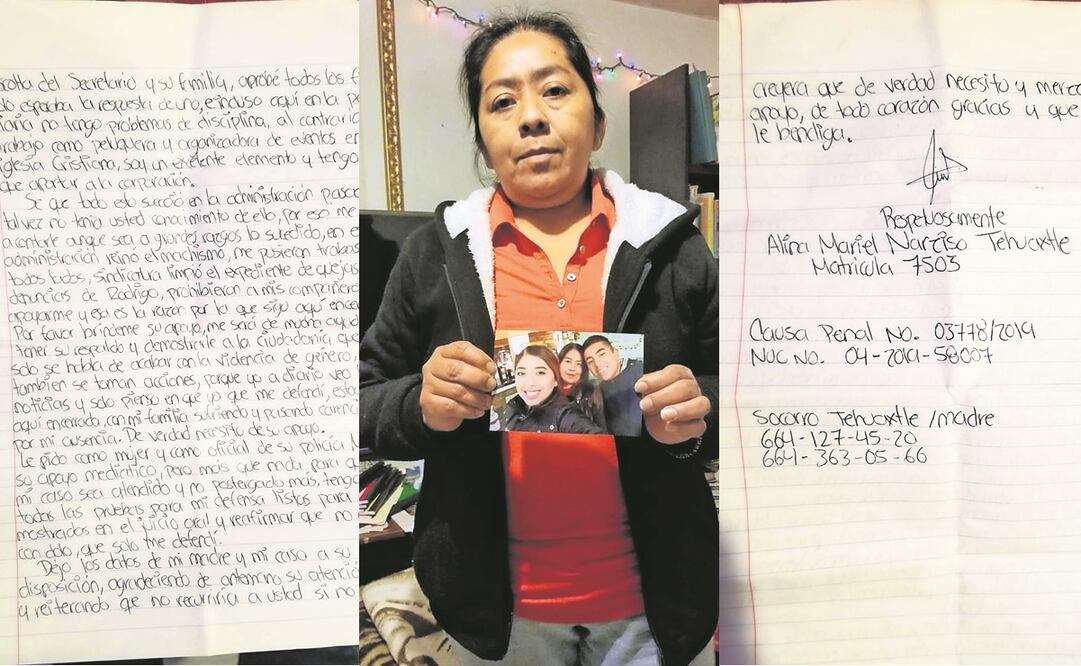 escolta del Secretario y su familia, aprobé todos los
solo esperaba la respuesta de uno, e incluso aquí en la
no tengo problemas de disciplina, al contrario
trabajo como peluquera y organizadora de eventos en
iglesia Cristiana, soy un exelente elemento y tengo
que aportar a la corporación.
Se que todo esto sucedió en la administración
talvez no tenia usted conocimiento de ello, por eso me
a contarle aunque sea a grandes rasgos lo sucedido, en
administración reinó el machismo, me pusieron trabas
todos todos, sindicatura limpió el expediente de quejas
denuncias de Rodrigo, prohibieron a mis compañeros
apoyarme y esa es la razon por la que sigo aquí
Por favor brindeme su apoyo, me será de mucha
tener su respaldo y demostrarle a la ciudadanía que
solo se habla de acabar con la violencia de género,
también se toman acciones, porque yo a diario veo
noticias y solo pienso en que yo que me defendí,
aquí encerrada, con mi familia sufriendo y pasando
por mi ausencia. De verdad necesito de su apoyo.
Le pido como mujer y como oficial de su policía
su apoyo mediático, pero más que nada, para
mi caso sea atendido y no postergado más, tengo
todas las pruebas para mi defensa listos para
mostrados en el juicio oral y reafirmar que no
con dolo, que solo me defendí.
Dejo los datos de mi madre y mi caso a su
disposición, agradeciendo de antemano su atención
y reiterando que no recurriria a usted si no
creyera que de verdad necesito y
apoyo, de todo corazón gracias y que
le bendiga.
Respetuosamente
Alina Mariel Narciso Tehuaxtle
Matrícula 7503
Causa Penal No. 03778/2019
NUC NO. 04-2019-58007
Socorro Tehuaxtle /madre
664-127-45-20
664-363-05-66